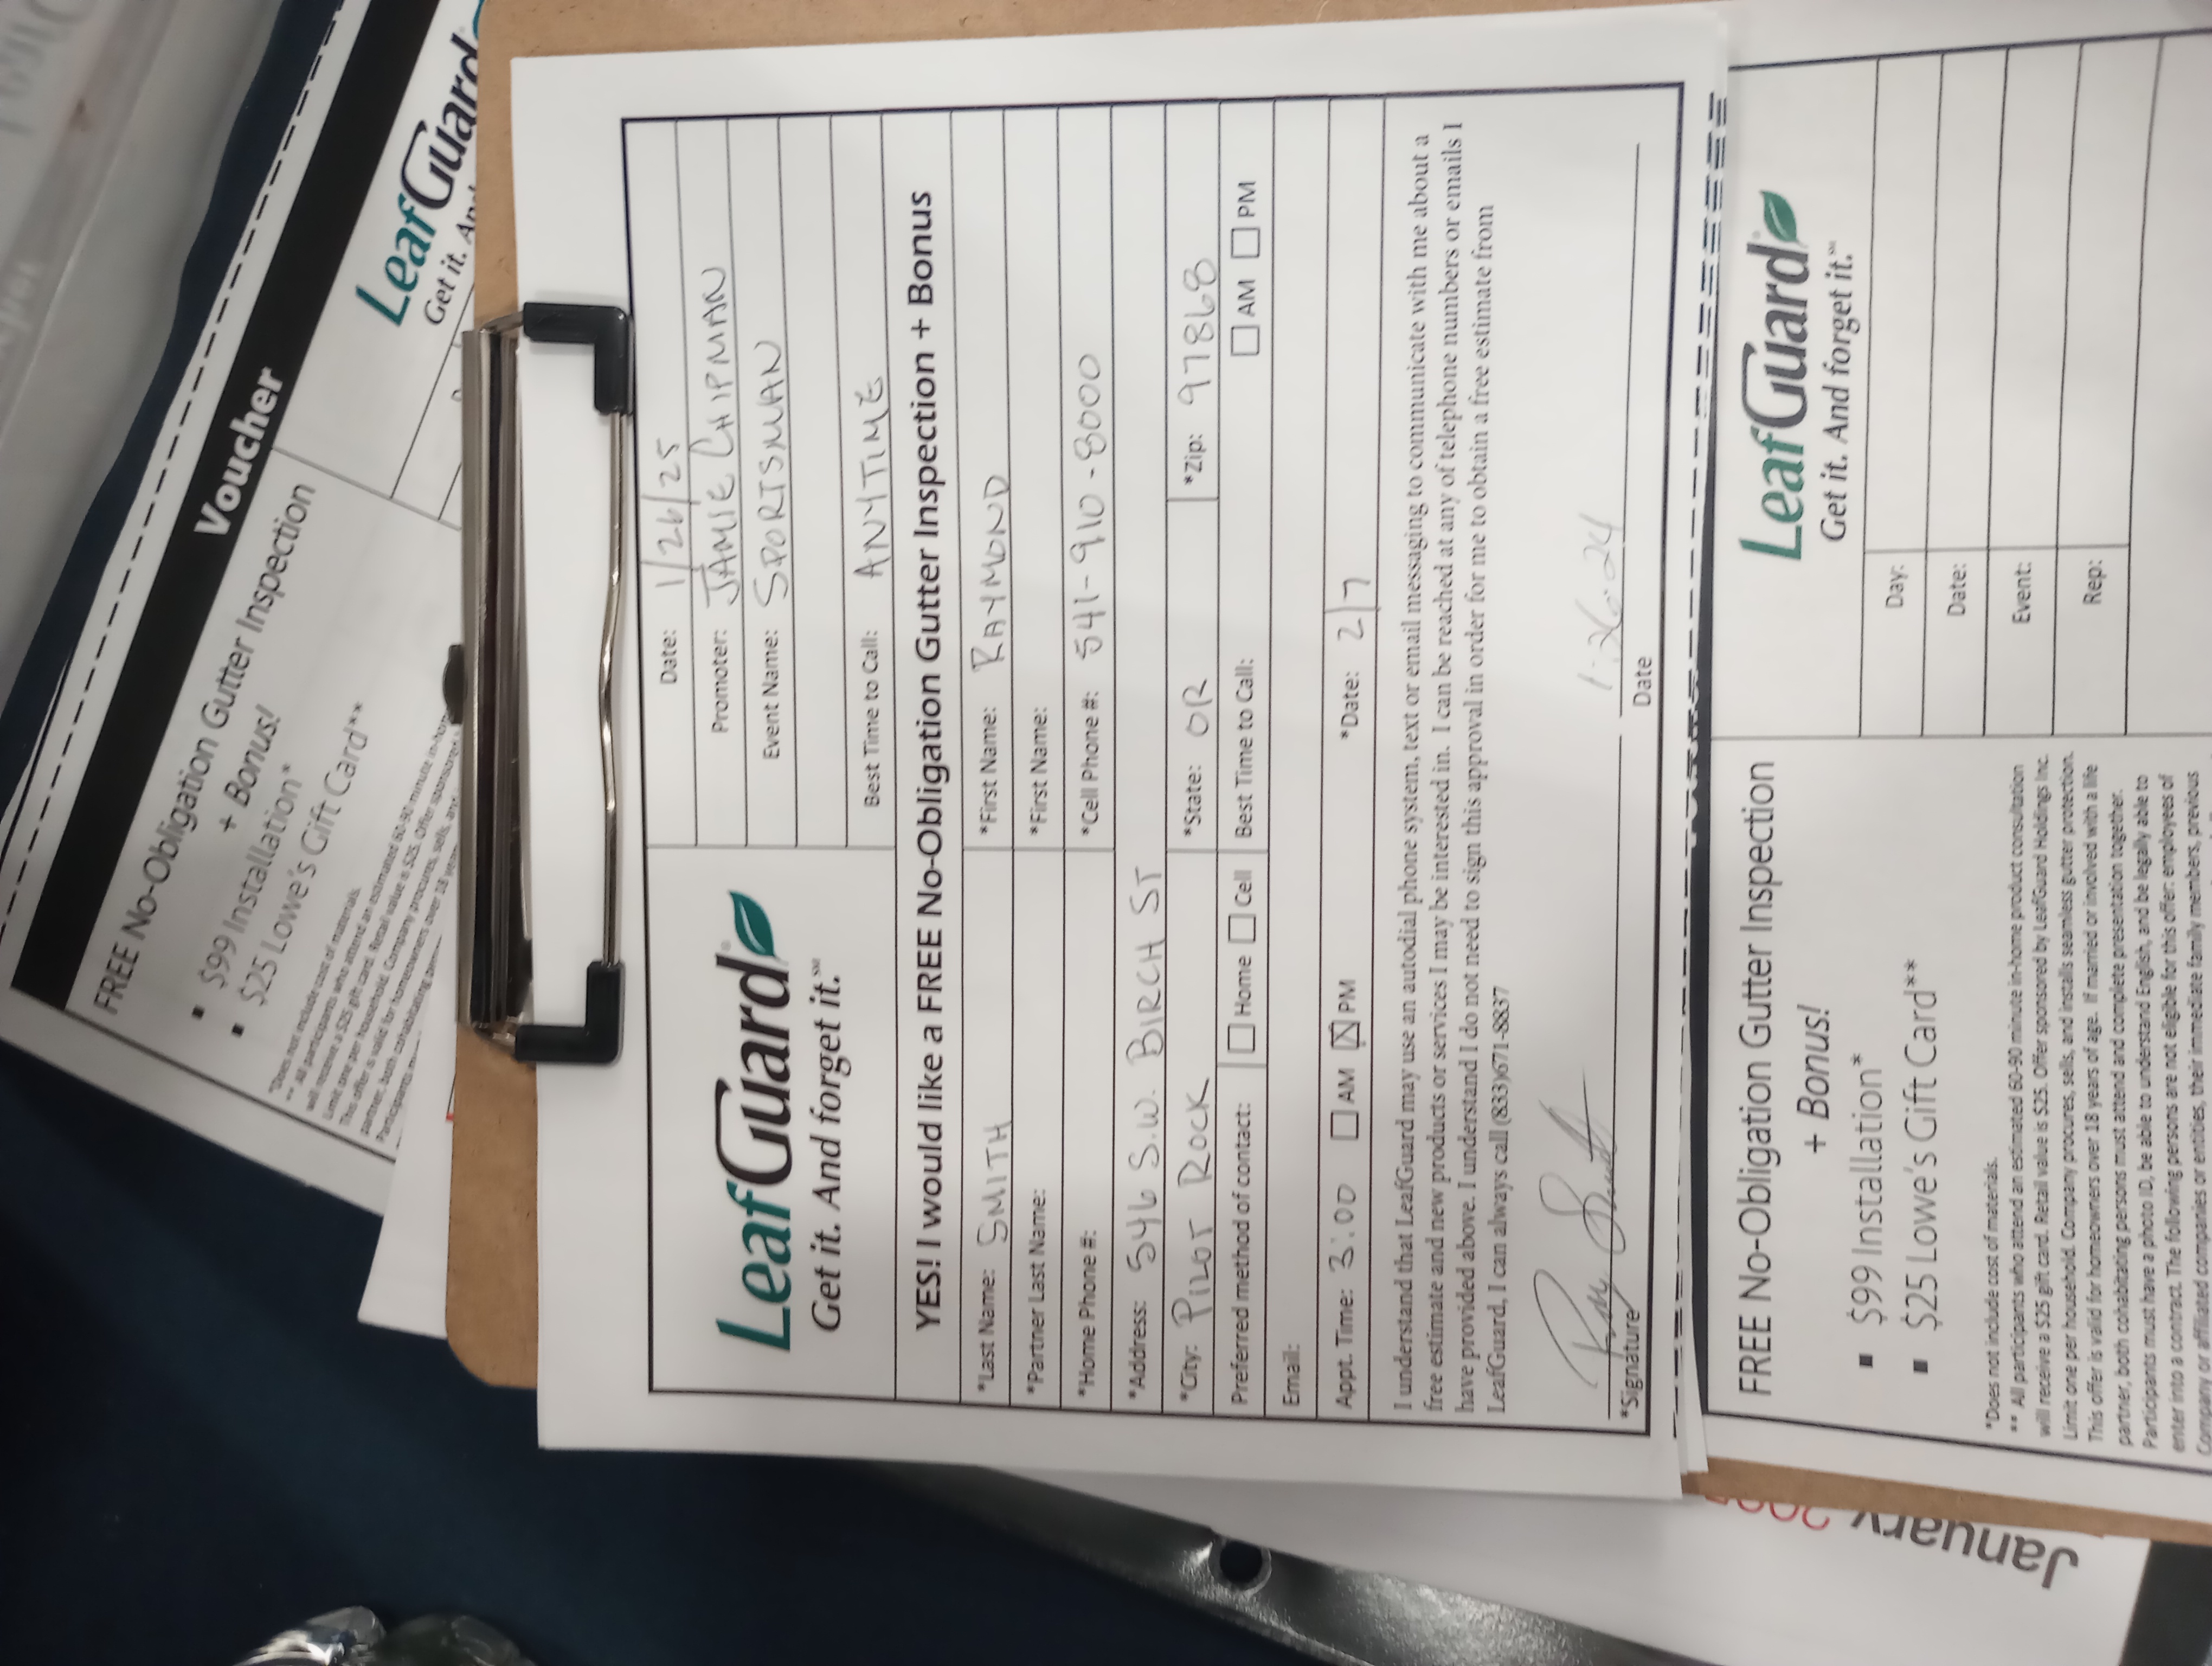 Voucher
FREE No-Obligation Gutter Inspection
+ Bonus!
▪ $99 Installation*
▪ $25 Lowe's Gift Card**
*Does not include cost of materials.
** All participants who attend an estimated 60-90 minute in-hom
will receive a $25 gift card. Retail value is $25. Offer sponsored
Limit one per household. Company procures, sells, and
This offer is valid for homeowners over 18 years
partner, both cohabitating
Participants
LeafGuard
Get it. And
LeafGuard
Get it. And forget it.℠
Date: 1/26/25
Promoter: JAMIE CHIPMAN
Event Name: SPORTSMAN
Best Time to Call: ANYTIME
YES! I would like a FREE No-Obligation Gutter Inspection + Bonus
*Last Name: SMITH *First Name: RAYMOND
*Partner Last Name: *First Name:
*Home Phone #: *Cell Phone #: 541-910-8000
*Address: 546 S.W. BIRCH ST
*City: PILOT ROCK *State: OR *Zip: 97868
Preferred method of contact: Home Cell Best Time to Call: AM PM
Email:
Appt. Time: 3:00 AM PM *Date: 2/7
I understand that LeafGuard may use an autodial phone system, text or email messaging to communicate with me about a
free estimate and new products or services I may be interested in. I can be reached at any of telephone numbers or emails I
have provided above. I understand I do not need to sign this approval in order for me to obtain a free estimate from
LeafGuard, I can always call (833)671-8837
Ray Smith 1-26-24
*Signature Date
FREE No-Obligation Gutter Inspection
+ Bonus!
▪ $99 Installation*
▪ $25 Lowe's Gift Card**
*Does not include cost of materials.
** All participants who attend an estimated 60-90 minute in-home product consultation
will receive a $25 gift card. Retail value is $25. Offer sponsored by LeafGuard Holdings Inc.
Limit one per household. Company procures, sells, and installs seamless gutter protection.
This offer is valid for homeowners over 18 years of age. If married or involved with a life
partner, both cohabitating persons must attend and complete presentation together.
Participants must have a photo ID, be able to understand English, and be legally able to
enter into a contract. The following persons are not eligible for this offer: employees of
Company or affiliated companies or entities, their immediate family members, previous
LeafGuard
Get it. And forget it.℠
Day:
Date:
Event:
Rep:
January 2025